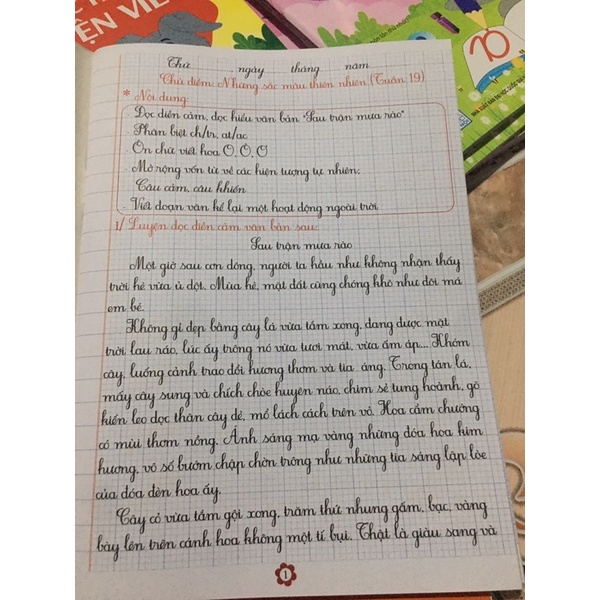 10
Thứ ngày tháng năm
Chủ điểm: Những sắc màu thiên nhiên (Tuần 19)
* Nội dung:
- Đọc diễn cảm, đọc hiểu văn bản "Sau trận mưa rào"
- Phân biệt ch/tr, at/ac
- Ôn chữ viết hoa O, Ô, Ơ
- Mở rộng vốn từ về các hiện tượng tự nhiên;
Câu cảm, câu khiến
- Viết đoạn văn kể lại một hoạt động ngoài trời
1/ Luyện đọc diễn cảm văn bản sau:
Sau trận mưa rào
Một giờ sau cơn dông, người ta hầu như không nhận thấy
trời hè vừa ủ dột. Mùa hè, mặt đất cũng chóng khô như đôi má
em bé.
Không gì đẹp bằng cây lá vừa tắm xong, đang được mặt
trời lau ráo, lúc ấy trông nó vừa tươi mát, vừa ấm áp... Khóm
cây, luống cảnh trao đổi hương thơm và tia sáng. Trong tán lá,
mấy cây sung và chích chòe huyên náo, chim sẻ tung hoành, gõ
kiến leo dọc thân cây dẻ, mổ lách cách trên vỏ. Hoa cẩm chướng
có mùi thơm nồng. Ánh sáng mạ vàng những đóa hoa kim
hương, vô số bướm chập chờn trông như những tia sáng lập lòe
của đóa đèn hoa ấy.
Cây cỏ vừa tắm gội xong, trăm thứ nhung gấm, bạc, vàng
bày lên trên cánh hoa không một tí bụi. Thật là giàu sang và
1